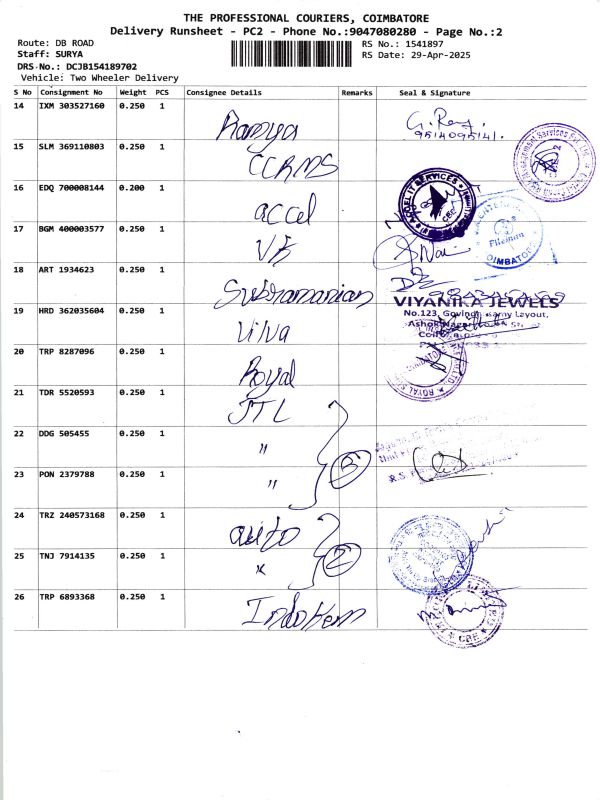 THE PROFESSIONAL COURIERS, COIMBATORE
Delivery Runsheet - PC2 - Phone No.:9047080280 - Page No.:2
Route: DB ROAD
Staff: SURYA
DRS No.: DCJB154189702
Vehicle: Two Wheeler Delivery
RS No.: 1541897
RS Date: 29-Apr-2025
S No Consignment No Weight PCS Consignee Details Remarks Seal & Signature
14 IXM 303527160 0.250 1 Ramya
9514095141.
15 SLM 369110803 0.250 1 CCRMS
16 EDQ 700008144 0.200 1 accel
ACCEL IT SERVICES
CBE
17 BGM 400003577 0.250 1 VB
18 ART 1934623 0.250 1 Subramanian
19 HRD 362035604 0.250 1 Viva
VIYANIKA JEWELS
No.123, Layout,
20 TRP 8287096 0.250 1 Royal
ROYAL
21 TDR 5520593 0.250 1 JTL
22 DDG 505455 0.250 1 "
23 PON 2379788 0.250 1 " 3
24 TRZ 240573168 0.250 1 auto
25 TNJ 7914135 0.250 1 " 2
26 TRP 6893368 0.250 1 Indokem
CBE